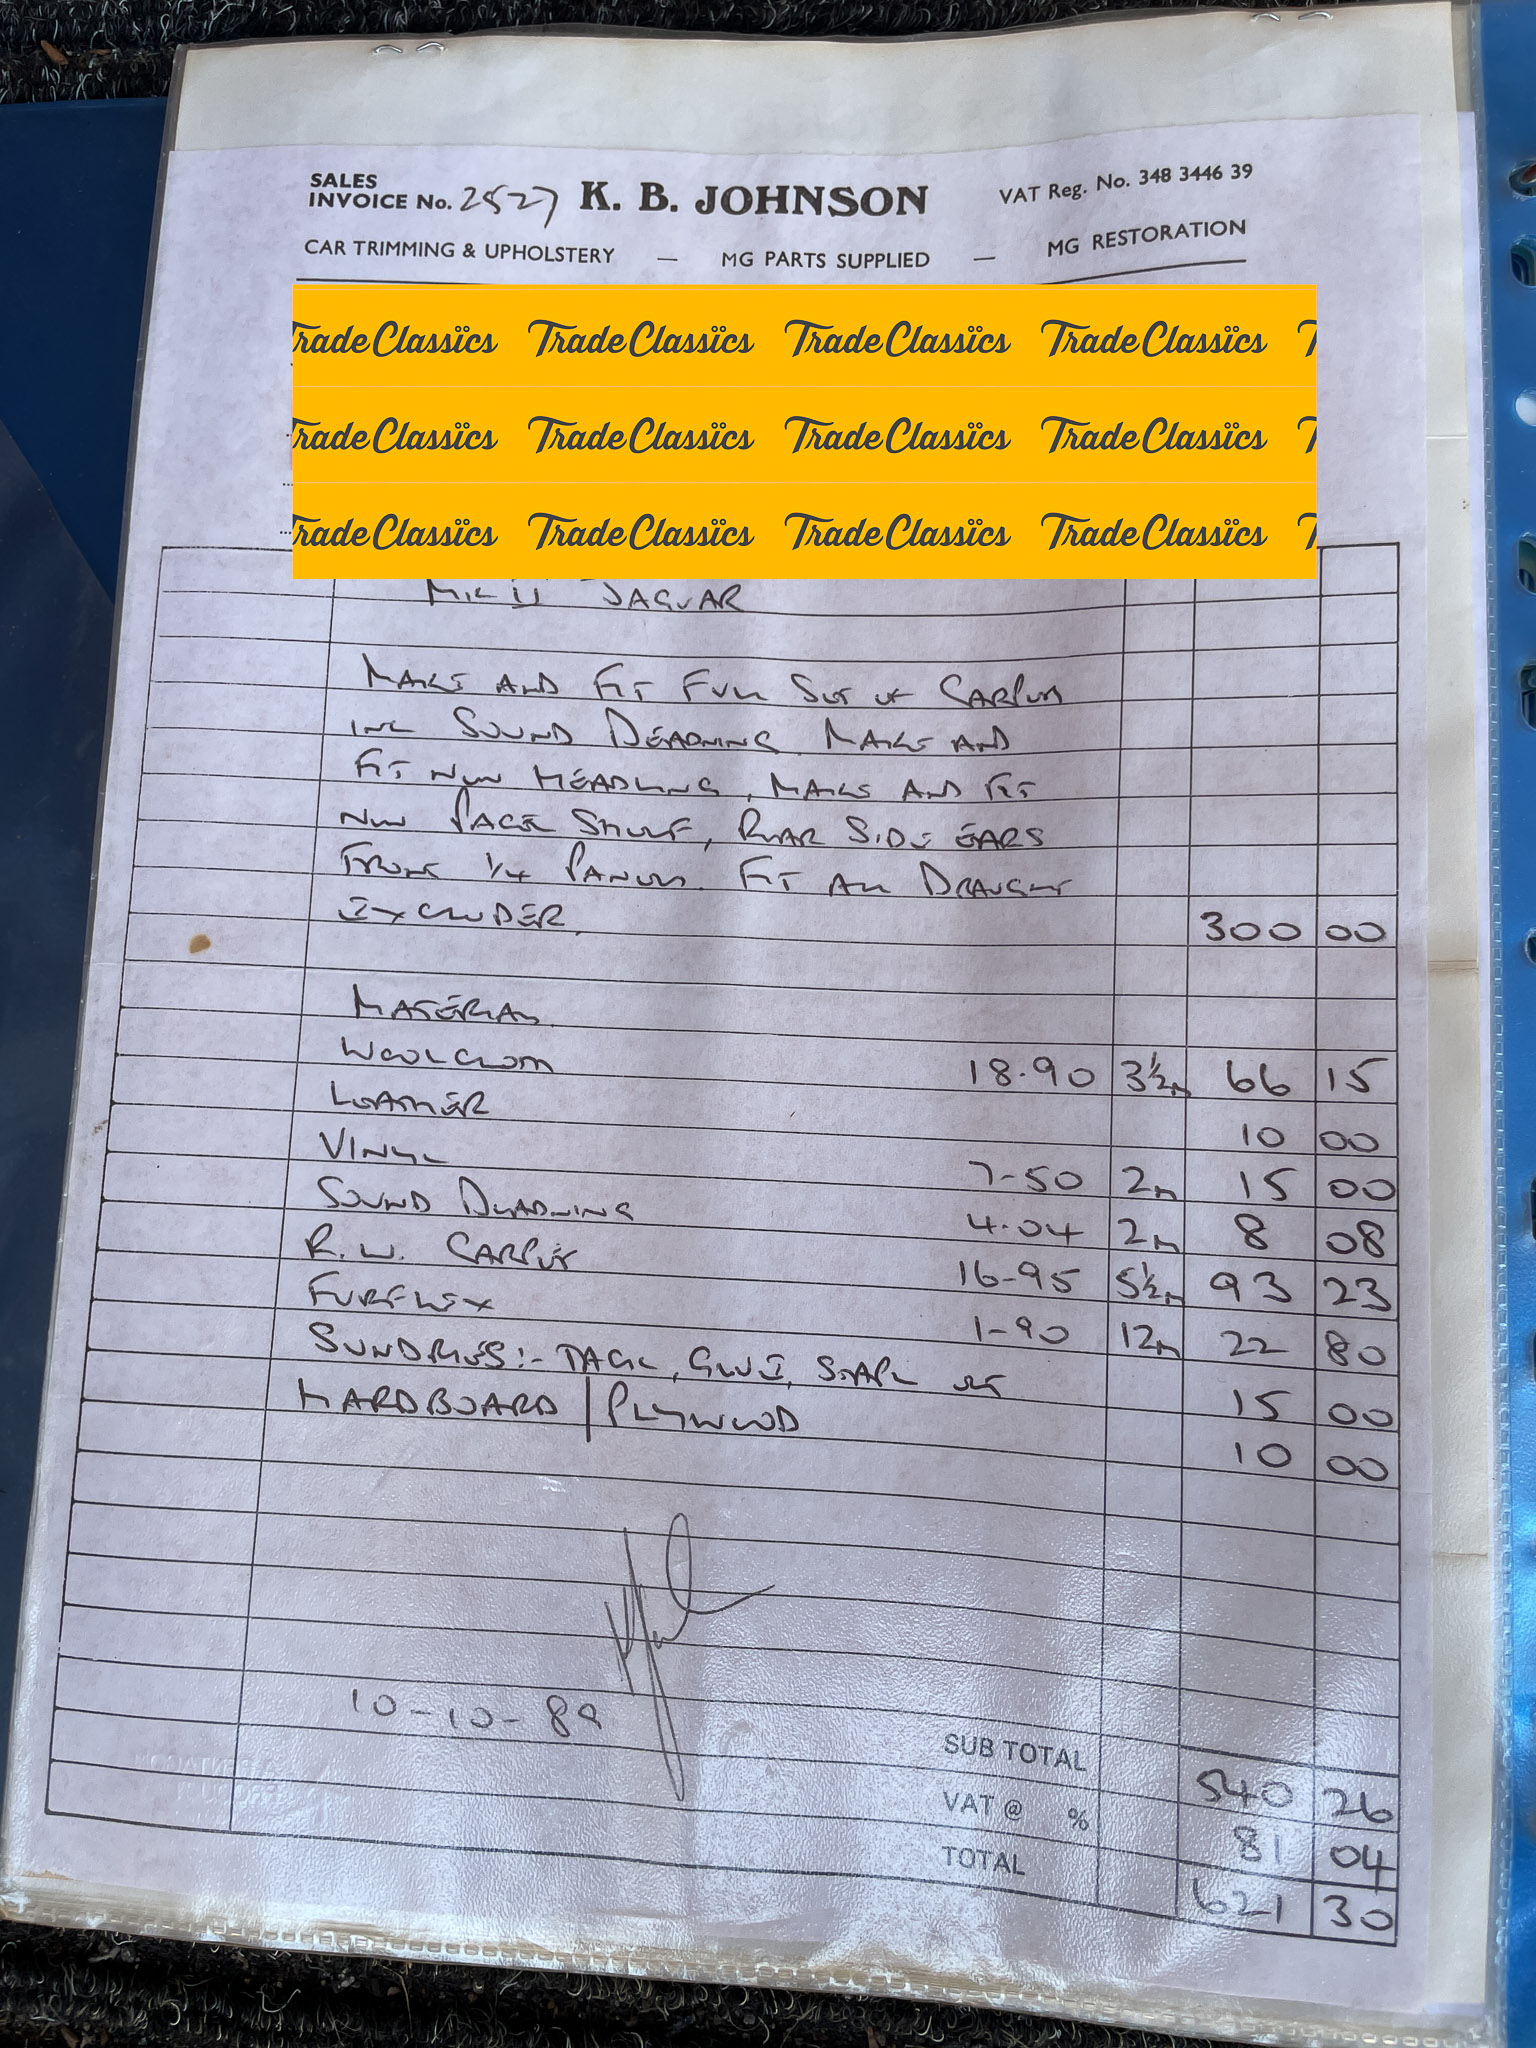 SALES
INVOICE No. 2527 K. B. JOHNSON VAT Reg. No. 348 3446 39
CAR TRIMMING & UPHOLSTERY — MG PARTS SUPPLIED — MG RESTORATION
Trade Classics Trade Classics Trade Classics Trade Classics T
Trade Classics Trade Classics Trade Classics Trade Classics T
Trade Classics Trade Classics Trade Classics Trade Classics T
MK II JAGUAR
MAKE AND FIT FULL SET OF CARPETS
INC SOUND DEADNING. MAKE AND
FIT NEW HEADLING, MAKE AND FIT
NEW PACK SHELF, REAR SIDE EARS
FRONT 1/4 PANELS. FIT ALL DRAUGHT
EXCLUDER. 300 00
MATERIAL
WOOLCLOTH 18.90 3½m 66 15
LEATHER 10 00
VINYL 7-50 2m 15 00
SOUND DEADNING 4.04 2m 8 08
R.W. CARPET 16-95 5½m 93 23
FURFLEX 1-90 12m 22 80
SUNDRIES:- TACK, GLUE, STAPL ETC 15 00
HARDBOARD / PLYWOOD 10 00
10-10-89
SUB TOTAL 540 26
VAT @ % 81 04
TOTAL 621 30